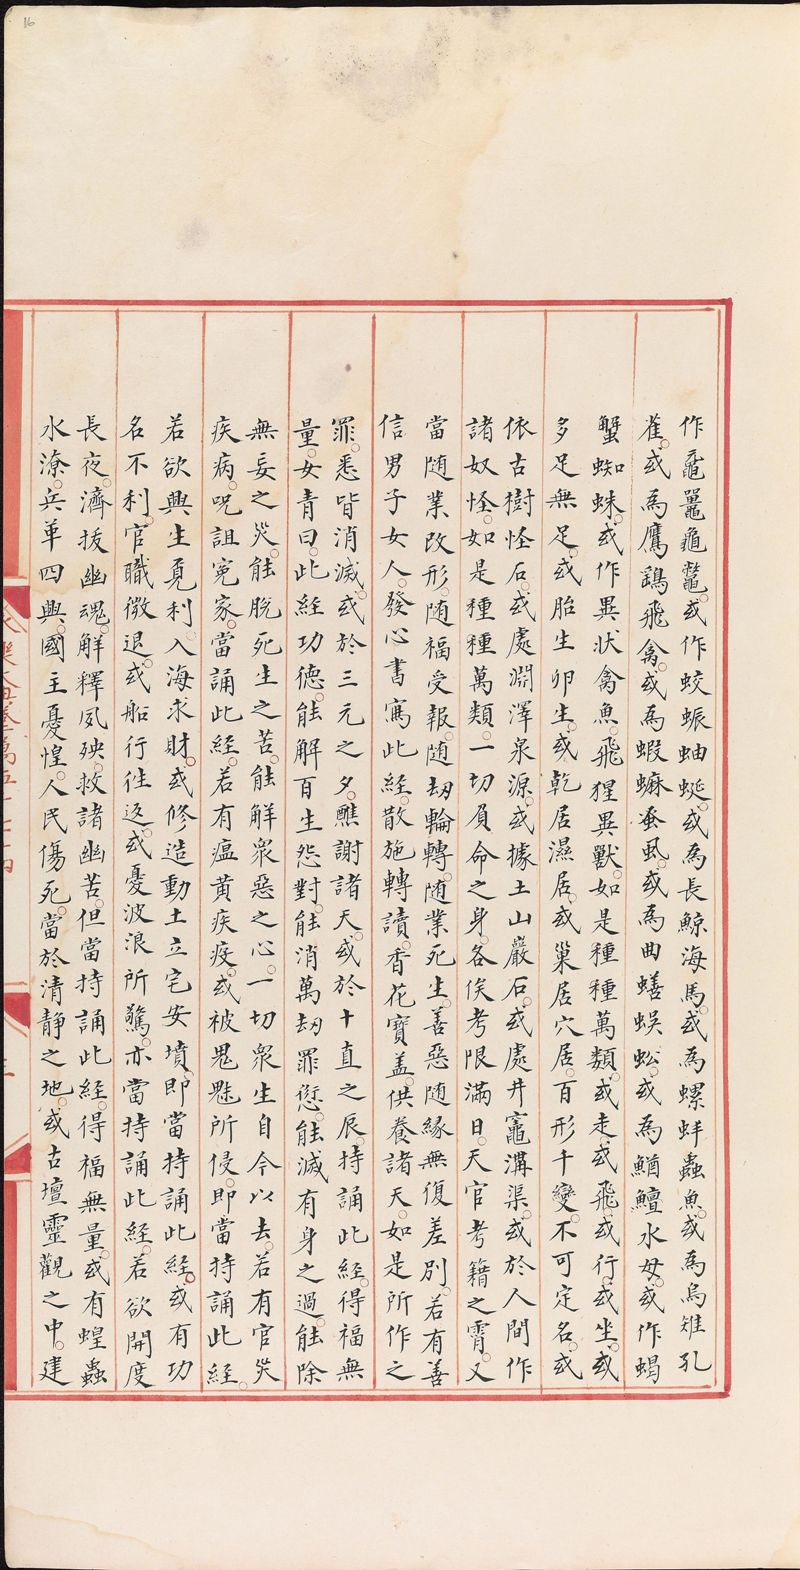 作黿鼉龜鼈。或作蛟蜃蚰蜒。或為長鯨海馬。或為螺蚌蟲魚。或為烏雉孔
雀。或為鷹鷂飛禽。或為蝦蟆蚤虱。或為曲蟮蜈蚣。或為鰌鱣水母。或作蝎
蟹蜘蛛。或作異狀禽魚。飛猩異獸。如是種種萬類。或走或飛。或行或坐。或
多足無足。或胎生卵生。或乾居濕居。或巢居穴居。百形千變。不可定名。或
依古樹怪石。或處淵澤泉源。或據土山巖石。或處井竈溝渠。或於人間作
諸奴怪。如是種種萬類。一切負命之身。各俟考限滿日。天官考籍之霄。又
當随業改形。随福受報。随刧輪轉。随業死生。善惡随緣。無復差別。若有善
信男子女人。發心書寫此經。散施轉讀。香花寶盖。供養諸天。如是所作之
罪。悉皆消滅。或於三元之夕。醮謝諸天。或於十直之辰。持誦此經。得福無
量。女青曰。此經功德。能解百生怨對。能消萬刧罪愆。能滅有身之過。能除
無妄之災。能脫死生之苦。能解衆惡之心。一切衆生自今以去。若有官災
疾病。呪詛寃家。當誦此經。若有瘟黄疾疫。或被鬼魅所侵。即當持誦此經。
若欲興生覓利。入海求財。或修造動土立宅安墳。即當持誦此經。或有功
名不利。官職微退。或船行徃返。或憂波浪所驚。亦當持誦此經。若欲開度
長夜。濟拔幽魂。解釋夙殃。救諸幽苦。但當持誦此經。得福無量。或有蝗蟲
水潦。兵革四興。國主憂惶。人民傷死。當於清静之地。或古壇靈觀之中。建
16